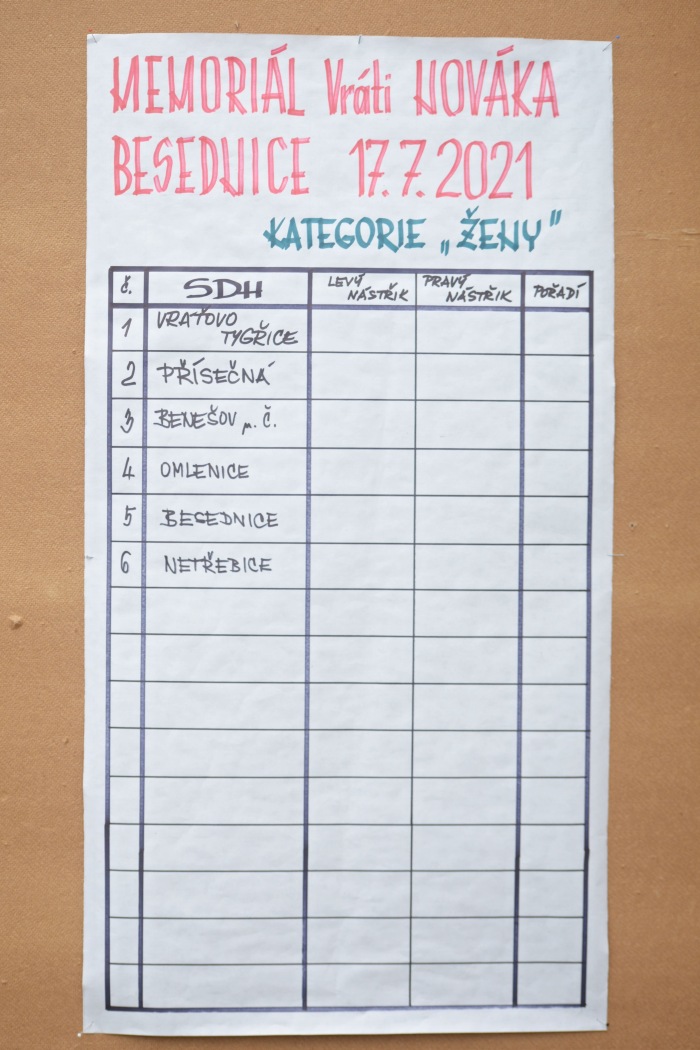 MEMORIÁL Vráti NOVÁKA
BESEDNICE 17.7.2021
KATEGORIE „ŽENY"
č. SDH LEVÝ NÁSTŘIK PRAVÝ NÁSTŘIK POŘADÍ
1 VRAŤOVO
TYGŘICE
2 PŘÍSEČNÁ
3 BENEŠOV n. Č.
4 OMLENICE
5 BESEDNICE
6 NETŘEBICE